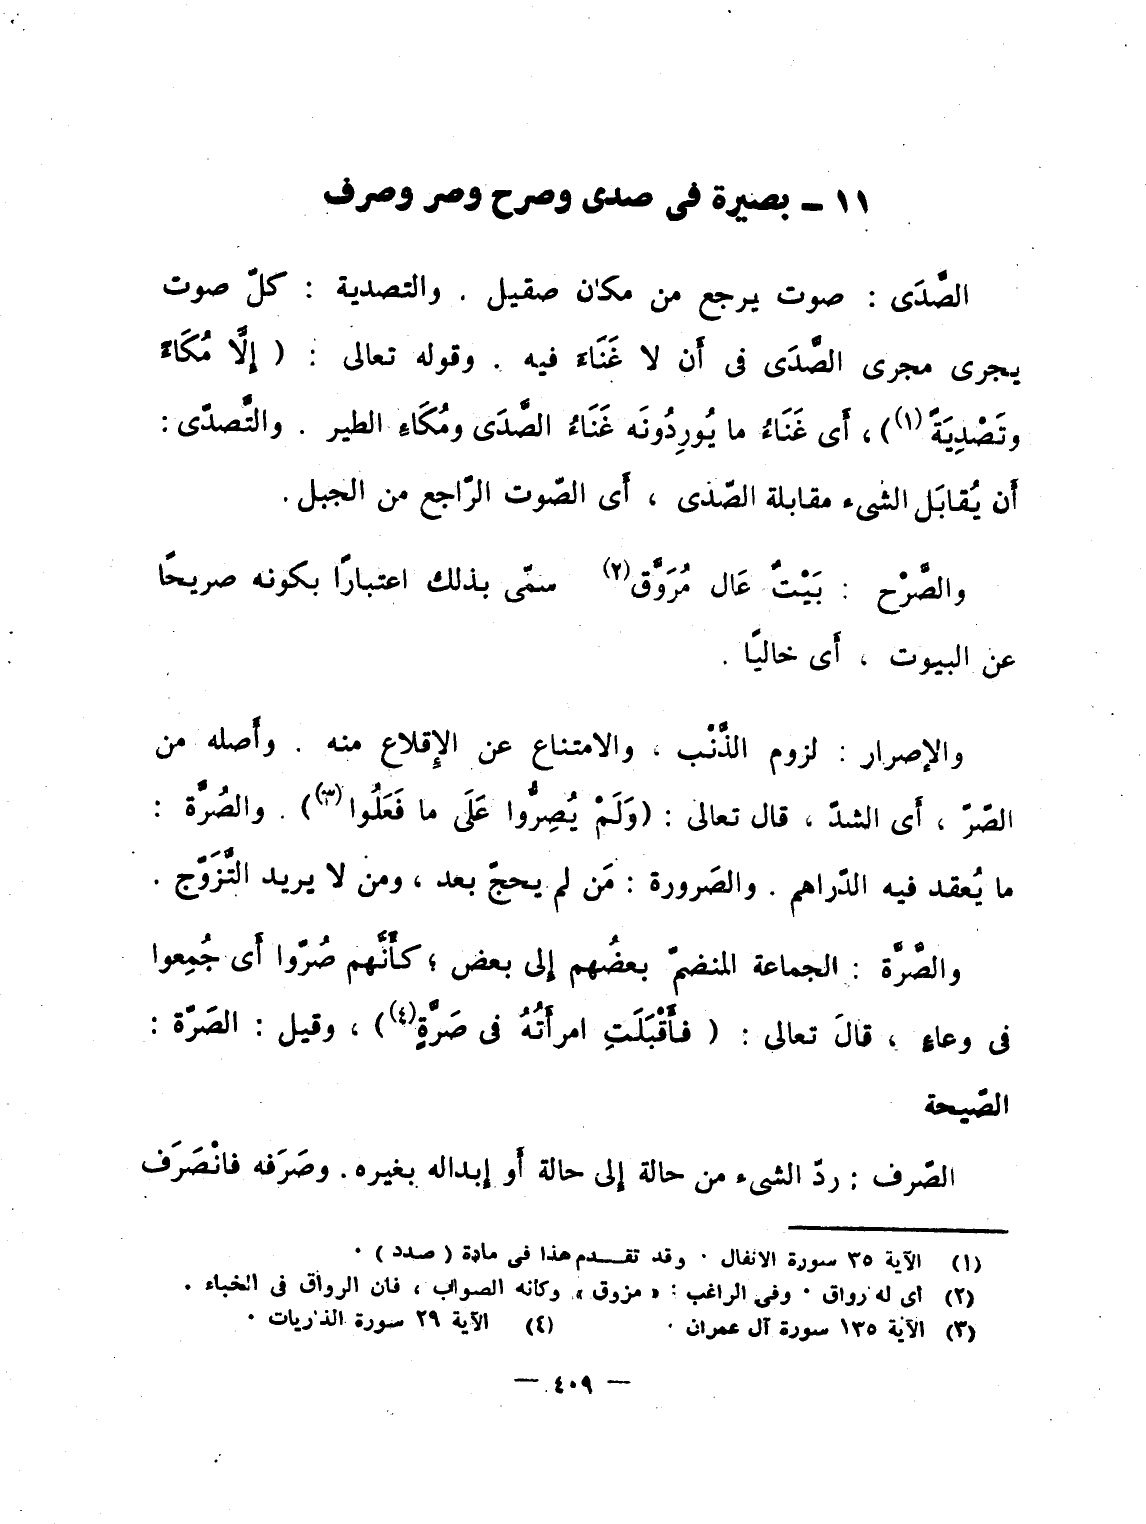 ١١ ـ بصيرة فى صدى وصرح وصر وصرف
الصَّدَى : صوت يرجع من مكان صقيل . والتصدية : كلّ صوت
يجرى مجرى الصَّدَى فى أَن لا غَنَاءَ فيه . وقوله تعالى : ( إِلَّا مُكَاءً
وتَصْدِيَةً (١) ) ، أَى غَنَاءُ ما يُورِدُونَه غَنَاءُ الصَّدَى ومُكَاءِ الطير . والتَّصدّى :
أَن يُقابَل الشىء مقابلة الصّدَى ، أَى الصّوت الرّاجع من الجبل .
والصَّرْح : بَيْتٌ عَال مُرَوَّق (٢) سمّى بذلك اعتبارًا بكونه صريحًا
عن البيوت ، أَى خاليًا .
والإصرار : لزوم الذَّنْب ، والامتناع عن الإِقلاع منه . وأَصله من
الصّرّ ، أَى الشدّ ، قال تعالى : (وَلَمْ يُصِرُّوا عَلَى ما فَعَلُوا (٣) ) . والصُرَّة :
ما يُعقد فيه الدّراهم . والصَرورة : مَن لم يحجّ بعد ، ومن لا يريد التَّزَوّج .
والصُّرَّة : الجماعة المنضمّ بعضُهم إلى بعض ؛ كأَنَّهم صُرّوا أَى جُمِعوا
فى وعاءٍ ، قالَ تعالى : ( فأَقْبَلَتِ امرأَتُهُ فى صَرَّةٍ (٤) ) ، وقيل : الصَرّة :
الصّيحة
الصّرف : ردّ الشىء من حالة إلى حالة أَو إبداله بغيره . وصَرَفه فانْصَرَف
(١) الآية ٣٥ سورة الانفال . وقد تقـــدم هذا فى مادة ( صدد ) .
(٢) أى له رواق . وفى الراغب : « مزوق » وكأنه الصواب ، فان الرواق فى الخباء .
(٣) الآية ١٣٥ سورة آل عمران . (٤) الآية ٢٩ سورة الذاريات .
— ٤٠٩ —